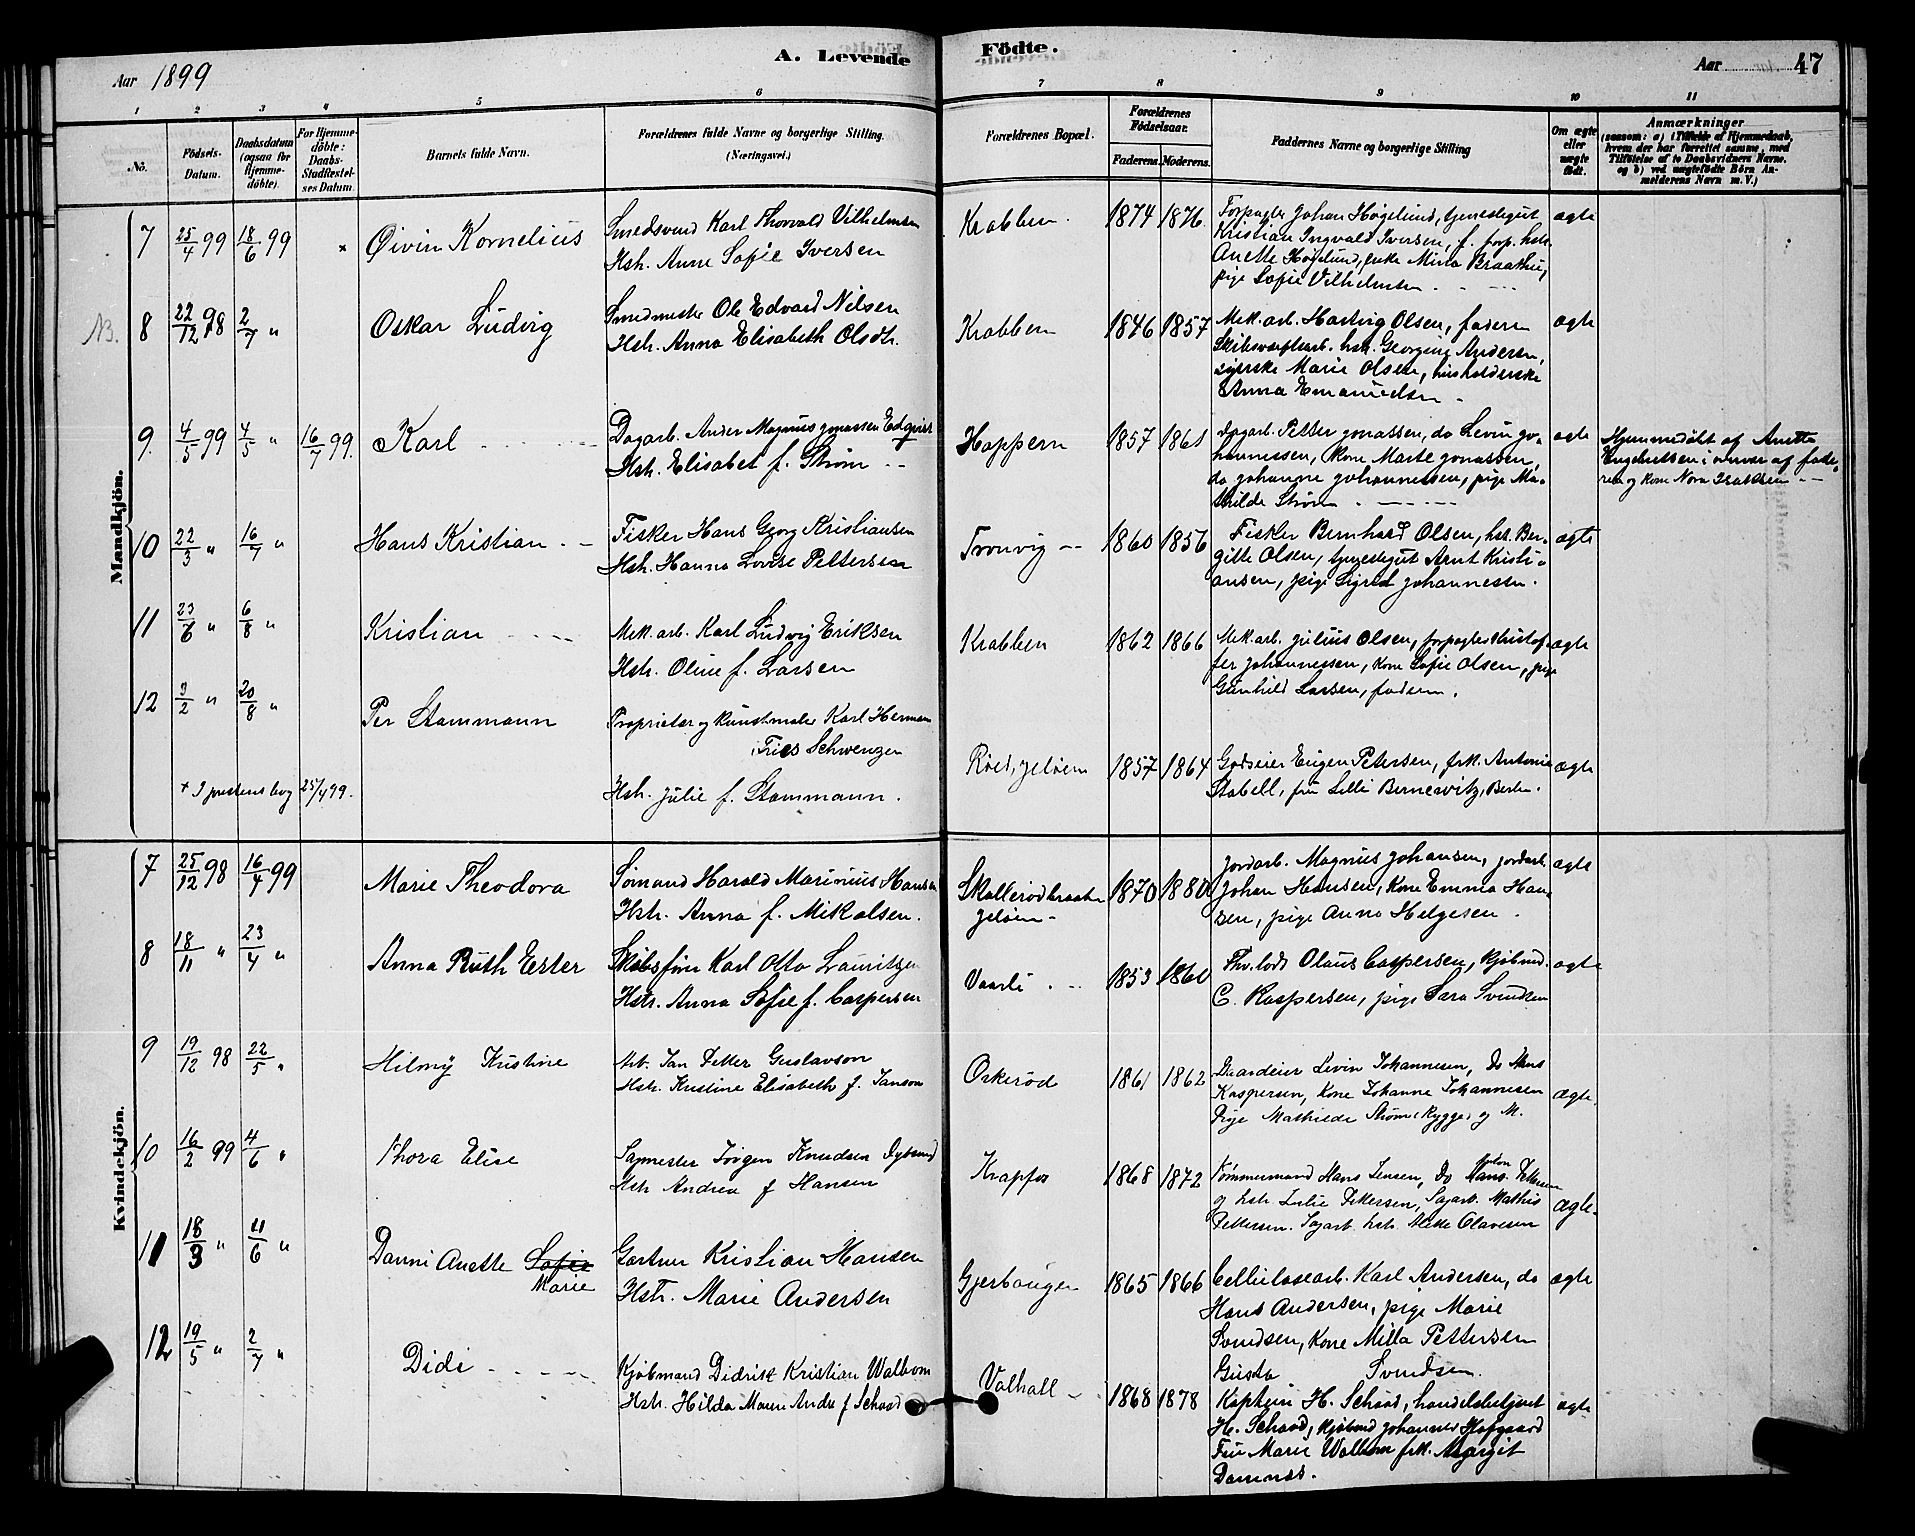 Aar 1899
A. Levende
Födte.
Aar 47
1 2 3 4 5 6 7 8 9 10 11
No.
Födsels-
Datum.
Daabsdatum
(ogsaa for
Hjemme-
döbte).
For Hjemme-
döbte:
Daabs-
Stadfæstel-
ses Datum.
Barnets fulde Navn.
Forældrenes fulde Navne og borgerlige Stilling.
(Næringsvei.)
Forældrenes Bopæl.
Forældrenes
Födselsaar.
Faderens. Moderens.
Faddernes Navne og borgerlige Stilling
Om ægte
eller
uægte
födt.
Anmærkninger
(saasom: a) i Tilfælde af Hjemmedaab,
hvem der har forrettet samme, med
Tilföielse af to Daabsvidners Navne,
og b) ved uægtefödte Börn An-
melderens Navn m. V.)
Mandkjön.
7 25/4 99 18/6 99 × Øivin Kornelius
Smedsvend Karl Thorvald Vilhelmsen
Hstr. Anne Sofie Iversen
Krabben. 1874 1876
Forpagter Johan Høgelund, tjenestegut
Kristian Ingvald Iversen, f. forp. hstr.
Anette Høgelund, enke Mina Braathu,
pige Sofie Vilhelmsen
ægte
NB. 8 22/12 98 2/7 " Oskar Ludvig
Smedmester Ole Edvard Nilsen
Hstr. Anna Elisabeth Olsdtr.
Krabben 1846 1857
Mek. arb. Hartvig Olsen, faderen
Skibsværftsarb. hstr. Georgine Andersen,
syerske Marie Olsen, husholderske
Anna Emanuelsen
ægte
9. 4/5 99 4/5 " 16/7 99. Karl
Dagarb. Anders Magnus Jonassen Edqvist
Hstr. Elisabet f. Strøm
Hoppern 1857 1861
Dagarb. Petter Jonassen, do Levin Jo-
hannessen, kone Marte Jonassen,
do Johanne Johannessen, pige Ma-
thilde Strøm
ægte
Hjemmedøbt af Anette
Engebretsen i nærvær af fade-
ren og kone Nora Isaksen
10 22/3 " 16/7 " Hans Kristian
Fisker Hans Georg Kristiansen
Hstr. Hanna Lovise Pettersen
Tronvig 1860 1856
Fisker Bernhard Olsen, hst. Ber-
gitte Olsen, tjenestegut Arnt Kristi-
ansen, pige Sigrid Johannessen.
ægte
11 23/6 " 6/8 " Kristian
Mek. arb. Karl Ludvig Eriksen
Hstr. Oline f. Larsen
Krabben 1862 1866
Mek. arb. Julius Olsen, forpagter Kristof-
fer Johannessen, kone Sofie Olsen, pige
Gunhild Larsen, faderen.
ægte
12 3/2 " 20/8 " Per Stammann
Proprietær og Kunstmaler Karl Herman
Fries Schwenzen
Hstr. Julie f. Stammann.
Røed, Jeløen 1857 1864
Godseier Eugen Petersen, frk. Antonie
Stabell, fru Lilli Bernewitz, Berlin.
ægte
+ I prestens bog 25/4 99.
Kvindekjön.
7 25/12 98 16/4 99 Marie Theodora
Sømand Harald Marinius Hansen
Hstr. Anna f. Mikalsen.
Skallerødbraaten
Jeløen 1870 1880
Jordarb. Magnus Johansen, jordarb.
Johan Hansen, Kone Emma Han-
sen, pige Anna Helgesen.
ægte
8 18/11 " 23/4 " Anna Ruth Ester
Skibsfører Karl Otto Lauritzen
Hstr. Anna Sofie f. Caspersen
Vaarli 1853 1860
Thv. lods Olaus Caspersen, kjøbmd.
C. Kaspersen, pige Sara Svendsen
ægte
9 19/12 98 22/5 " Hilmy Kristine
Arb. Jan Petter Gustavson
Hstr. Kristine Elisabeth f. Janson
Orkerød 1861 1862
Gaardeier Levin Johannesen, Do Hans
Kaspersen, Kone Johanne Johannesen
Pige Mathilde Strøm, Rygge, og M.
ægte
10 16/2 99 4/6 " Thora Elise
Sagmester Jørgen Knudsen Dybsund
Hstr Andrea f Hansen
Krapfos 1868 1872
Tømmermand Hans Jensen, Do Hans Anton Pettersen
og hstr Julie Pettersen, Sagarb. Mathis
Pettersen. Sagarb. hstr Mette Olavesen
ægte
11 18/3 " 11/6 " Danni Anette Sofie
Marie
Gartner Kristian Hansen
Hstr. Marie Andersen
Gjerhaugen 1865 1866
Cellulosearb. Karl Andersen, do
Hans Andersen, pige Marie
Svendsen, Kone Milla Pettersen
Gusta Svendsen.
ægte
12 19/5 " 2/7 " Didi
Kjøbmand Didrik Kristian Walbom
Hstr. Hilda Marie Andrea f Schaad
Valhall 1868 1878
Kaptein H. Schaad, handelsbetjent
H. Schaad, Kjøbmd Johannes Hofgaard
Fru Marie Walbom frk. Margit
Damnæs.
ægte